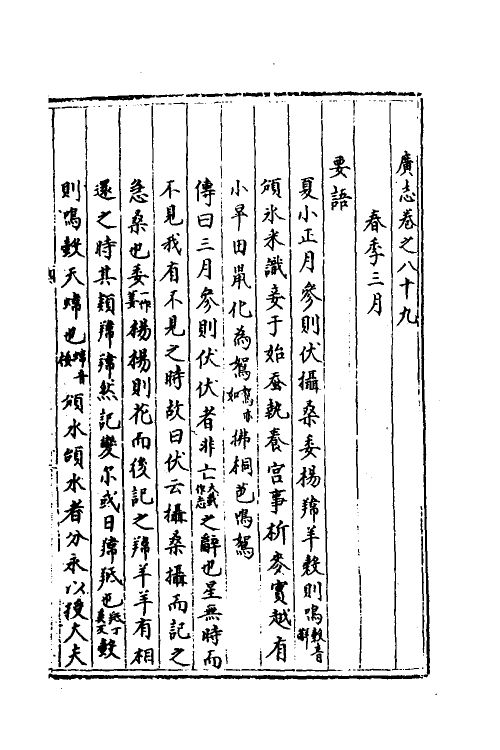 廣志卷之八十九
春季三月
要語
夏小正月參則伏攝桑委楊䍮羊榖則鳴榖音斛
頒氷釆識妾于始蚕執養宫事祈麥實越有
小旱田鼠化為鴽鴽亦如拂桐芭鳴鴽
傳曰三月參則伏伏者非亡大戴作忘之辭也星無時而
不見我有不見之時故曰伏云攝桑攝而記之
急桑也委一作萎楊楊則花而後記之䍮羊羊有相
還之時其類䍮䍮然記變尔或曰䍮羝也羝丁奚反榖
則鳴榖天螻也螻音樓頒水頒水者分氷以授大夫